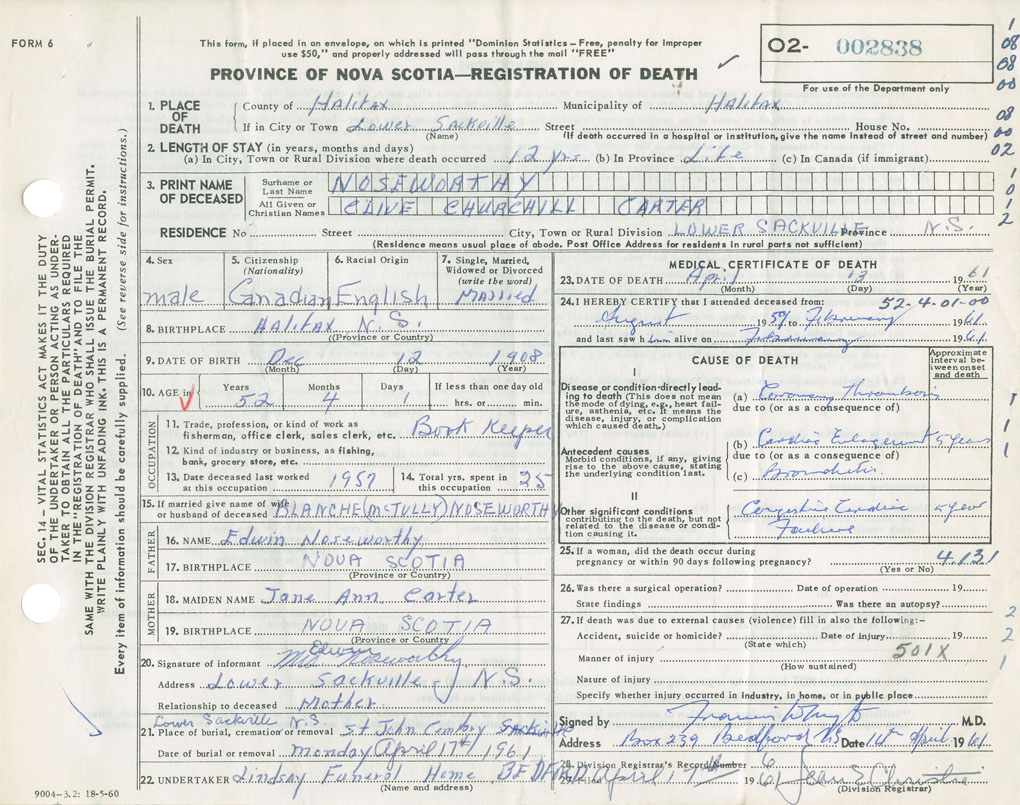 FORM 6
This form, if placed in an envelope, on which is printed "Dominion Statistics – Free, penalty for improper
use $50," and properly addressed will pass through the mail "FREE"
PROVINCE OF NOVA SCOTIA—REGISTRATION OF DEATH
O2- 002838
For use of the Department only
1. PLACE OF DEATH County of Halifax Municipality of Halifax
If in City or Town Lower Sackville Street House No.
(Name) (If death occurred in a hospital or institution, give the name instead of street and number)
2. LENGTH OF STAY (in years, months and days)
(a) In City, Town or Rural Division where death occurred 12 yrs (b) In Province Life (c) In Canada (if immigrant)
3. PRINT NAME OF DECEASED
Surname or Last Name NOSEWORTHY
All Given or Christian Names CLIVE CHURCHILL CARTER
RESIDENCE No Street City, Town or Rural Division LOWER SACKVILLE Province N.S.
(Residence means usual place of abode. Post Office Address for residents in rural parts not sufficient)
4. Sex male
5. Citizenship (Nationality) Canadian
6. Racial Origin English
7. Single, Married, Widowed or Divorced (write the word) Married
8. BIRTHPLACE Halifax N.S.
((Province or Country)
9. DATE OF BIRTH Dec 12 1908
(Month) (Day) (Year)
10. AGE in Years 52 Months 4 Days 1 If less than one day old hrs. or min.
OCCUPATION
11. Trade, profession, or kind of work as
fisherman, office clerk, sales clerk, etc. Book Keeper
12. Kind of industry or business, as fishing,
bank, grocery store, etc.
13. Date deceased last worked at this occupation 1957
14. Total yrs. spent in this occupation 25
15. If married give name of wife or husband of deceased BLANCHE (McTULLY) NOSEWORTHY
FATHER
16. NAME Edwin Noseworthy
17. BIRTHPLACE NOVA SCOTIA
(Province or Country)
MOTHER
18. MAIDEN NAME Jane Ann Carter
19. BIRTHPLACE NOVA SCOTIA
(Province or Country
20. Signature of informant Mrs Edwin Noseworthy
Address Lower Sackville N.S.
Relationship to deceased Mother
Lower Sackville N.S
21. Place of burial, cremation or removal St John Cemtry Sackville
Date of burial or removal Monday April 17th 1961
22. UNDERTAKER Lindsay Funeral Home BEDFORD
(Name and address)
9004–3.2: 18-5-60
MEDICAL CERTIFICATE OF DEATH
23. DATE OF DEATH April 13 1961
(Month) (Day) (Year)
24. I HEREBY CERTIFY that I attended deceased from: 52-4-01-00
August 1959 to February 1961
and last saw him alive on February 1961
CAUSE OF DEATH
Approximate interval between onset and death
I
Disease or condition directly leading to death (This does not mean the mode of dying, e.g., heart failure, asthenia, etc. It means the disease, injury, or complication which caused death.)
(a) Coronary Thrombosis
due to (or as a consequence of)
(b) Cardiac Enlargement 5 years
due to (or as a consequence of)
Antecedent causes
Morbid conditions, if any, giving rise to the above cause, stating the underlying condition last.
(c) Bronchitis.
II
Other significant conditions
contributing to the death, but not related to the disease or condition causing it.
Congestive Cardiac Failure
25. If a woman, did the death occur during
pregnancy or within 90 days following pregnancy? 4.131
(Yes or No)
26. Was there a surgical operation? Date of operation 19
State findings Was there an autopsy?
27. If death was due to external causes (violence) fill in also the following:–
Accident, suicide or homicide? Date of injury 19
(State which)
Manner of injury 501X
(How sustained)
Nature of injury
Specify whether injury occurred in industry, in home, or in public place
Signed by M.D.
Address Box 239 Bedford NS Date 14th April 1961
28. Division Registrar's Record Number 6
29. Filed April 17th 1961 Jean E Christie
(Division Registrar)
SEC. 14 – VITAL STATISTICS ACT MAKES IT THE DUTY
OF THE UNDERTAKER OR PERSON ACTING AS UNDER-
TAKER TO OBTAIN ALL THE PARTICULARS REQUIRED
IN THE "REGISTRATION OF DEATH" AND TO FILE THE
SAME WITH THE DIVISION REGISTRAR WHO SHALL ISSUE THE BURIAL PERMIT.
WRITE PLAINLY WITH UNFADING INK. THIS IS A PERMANENT RECORD.
Every item of information should be carefully supplied. (See reverse side for instructions.)
1
08
08
00
08
00
02
1
0
1
2
1
1
1
2
2
1